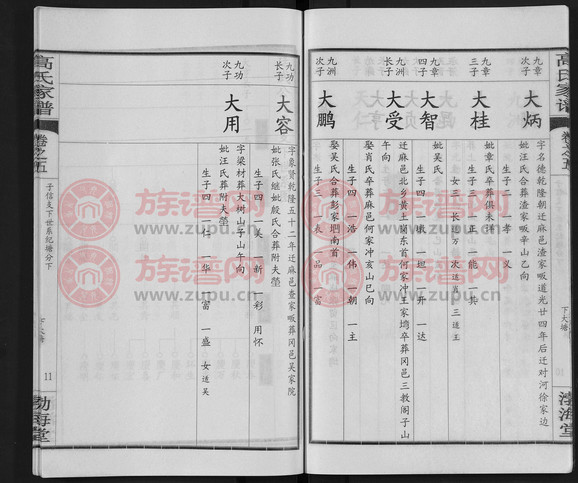 高氏家谱
卷之五
下大塘
渤海堂
九章
次子
大炳
字名德乾隆朝迁麻邑渣家畈道光廿四年后迁对河徐家边
妣汪氏合葬渣家畈辛山乙向
生子二 一孝 一义
九章
三子
大桂
妣章氏卒葬俱未详
生子三 一正 一能 一共
女三 长适万 次适肖 三适王
九章
四子
大智
妣吴氏
生子四 一畎 一坦 一开 一达
九洲
长子
大受
迁麻邑北乡黄王岗东首何家冲王家塆卒葬冈邑三教阁子山
娶肖氏卒葬麻邑何家冲亥山巳向
生子四 一浩 一伟 一朝 一主
九洲
次子
大鹏
娶吴氏合葬彭家塆南首
生子三 一表 一品 一富
九功
长子
大容
字象贤乾隆五十二年迁麻邑查家畈葬冈邑吴家院
妣张氏继妣殷氏合葬附夫茔
生子四 一美 一新 一彩 用怀
九功
次子
大用
字梁材葬大树山子山午向
妣汪氏葬附夫茔
生子四 一仁 一华 一富 一盛 女适吴
高氏家谱
卷之五
子信支下世系纪塘分下
下大塘
11
渤海堂
族谱网
www.zupu.cn
族谱网
www.zupu.cn